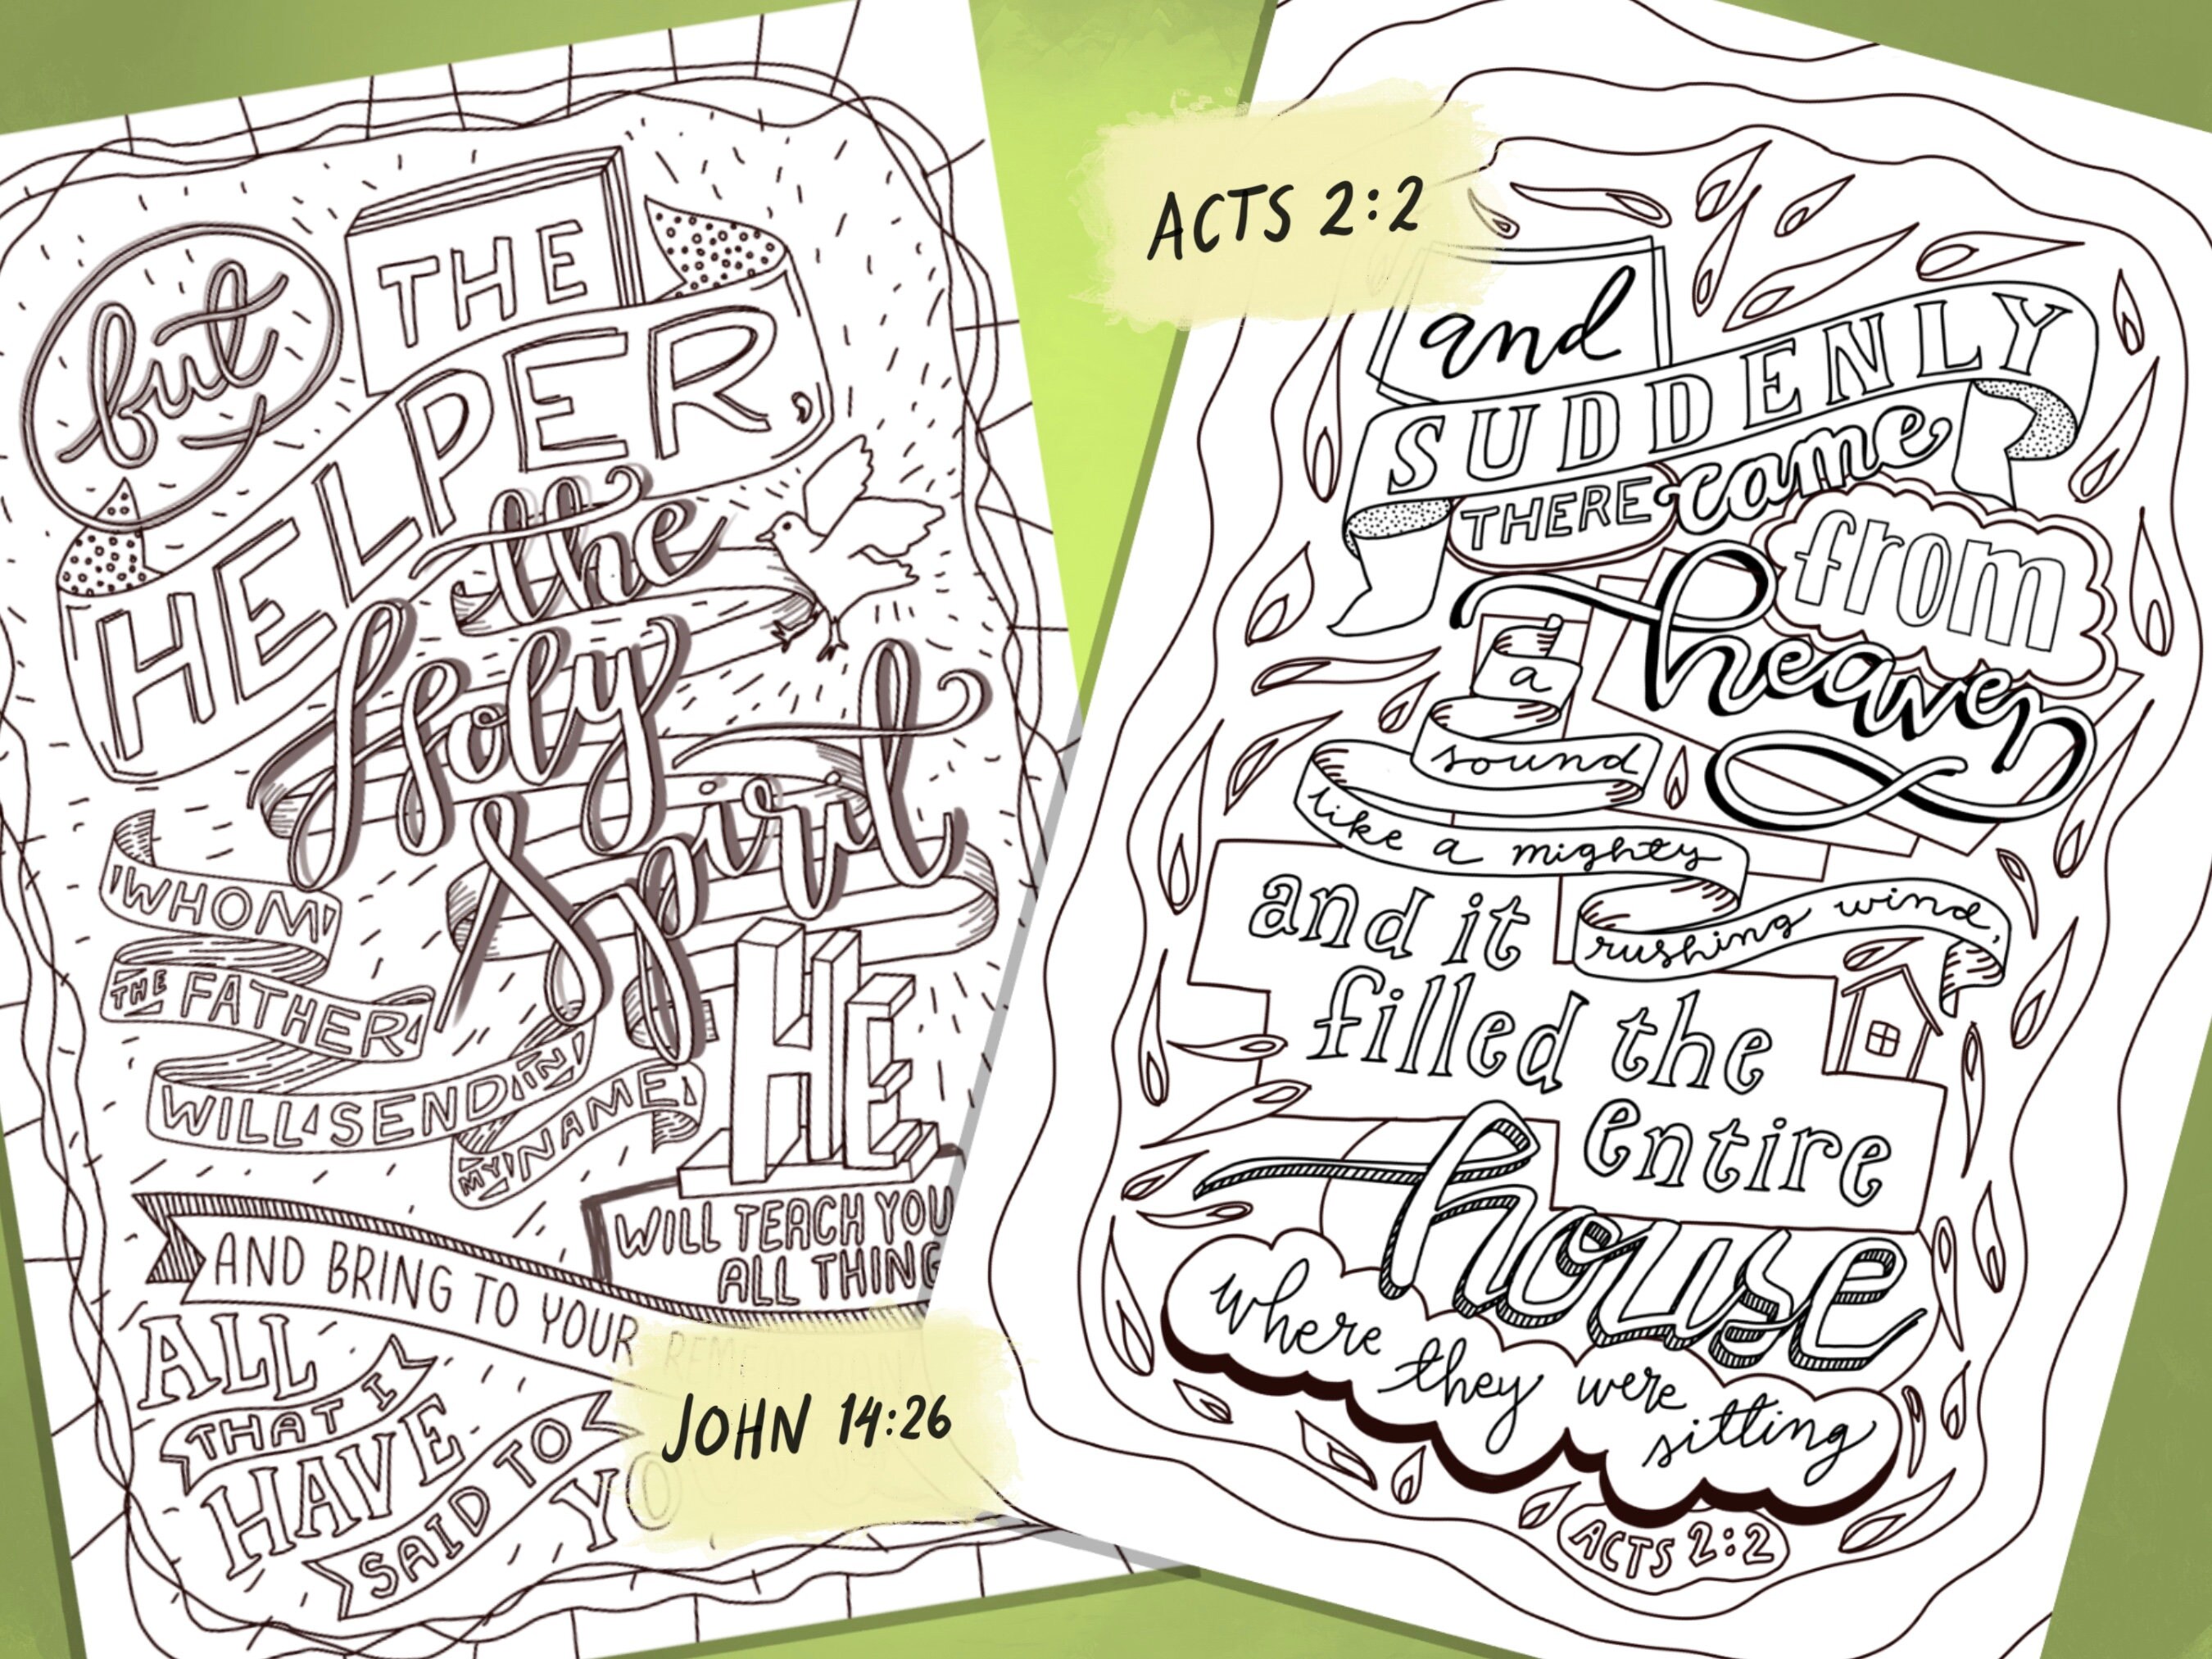 but
THE
HELPER,
the
Holy
Spirit
WHOM
THE FATHER
WILL SEND IN
MY NAME
HE
WILL TEACH YOU
ALL THING
AND BRING TO YOUR
ALL
THAT I
HAVE
SAID TO
YO
JOHN 14:26
ACTS 2:2
and
SUDDENLY
THERE came
from
heaven
a
sound
like a mighty
rushing wind,
and it
filled the
entire
house
where they were
sitting
ACTS 2:2